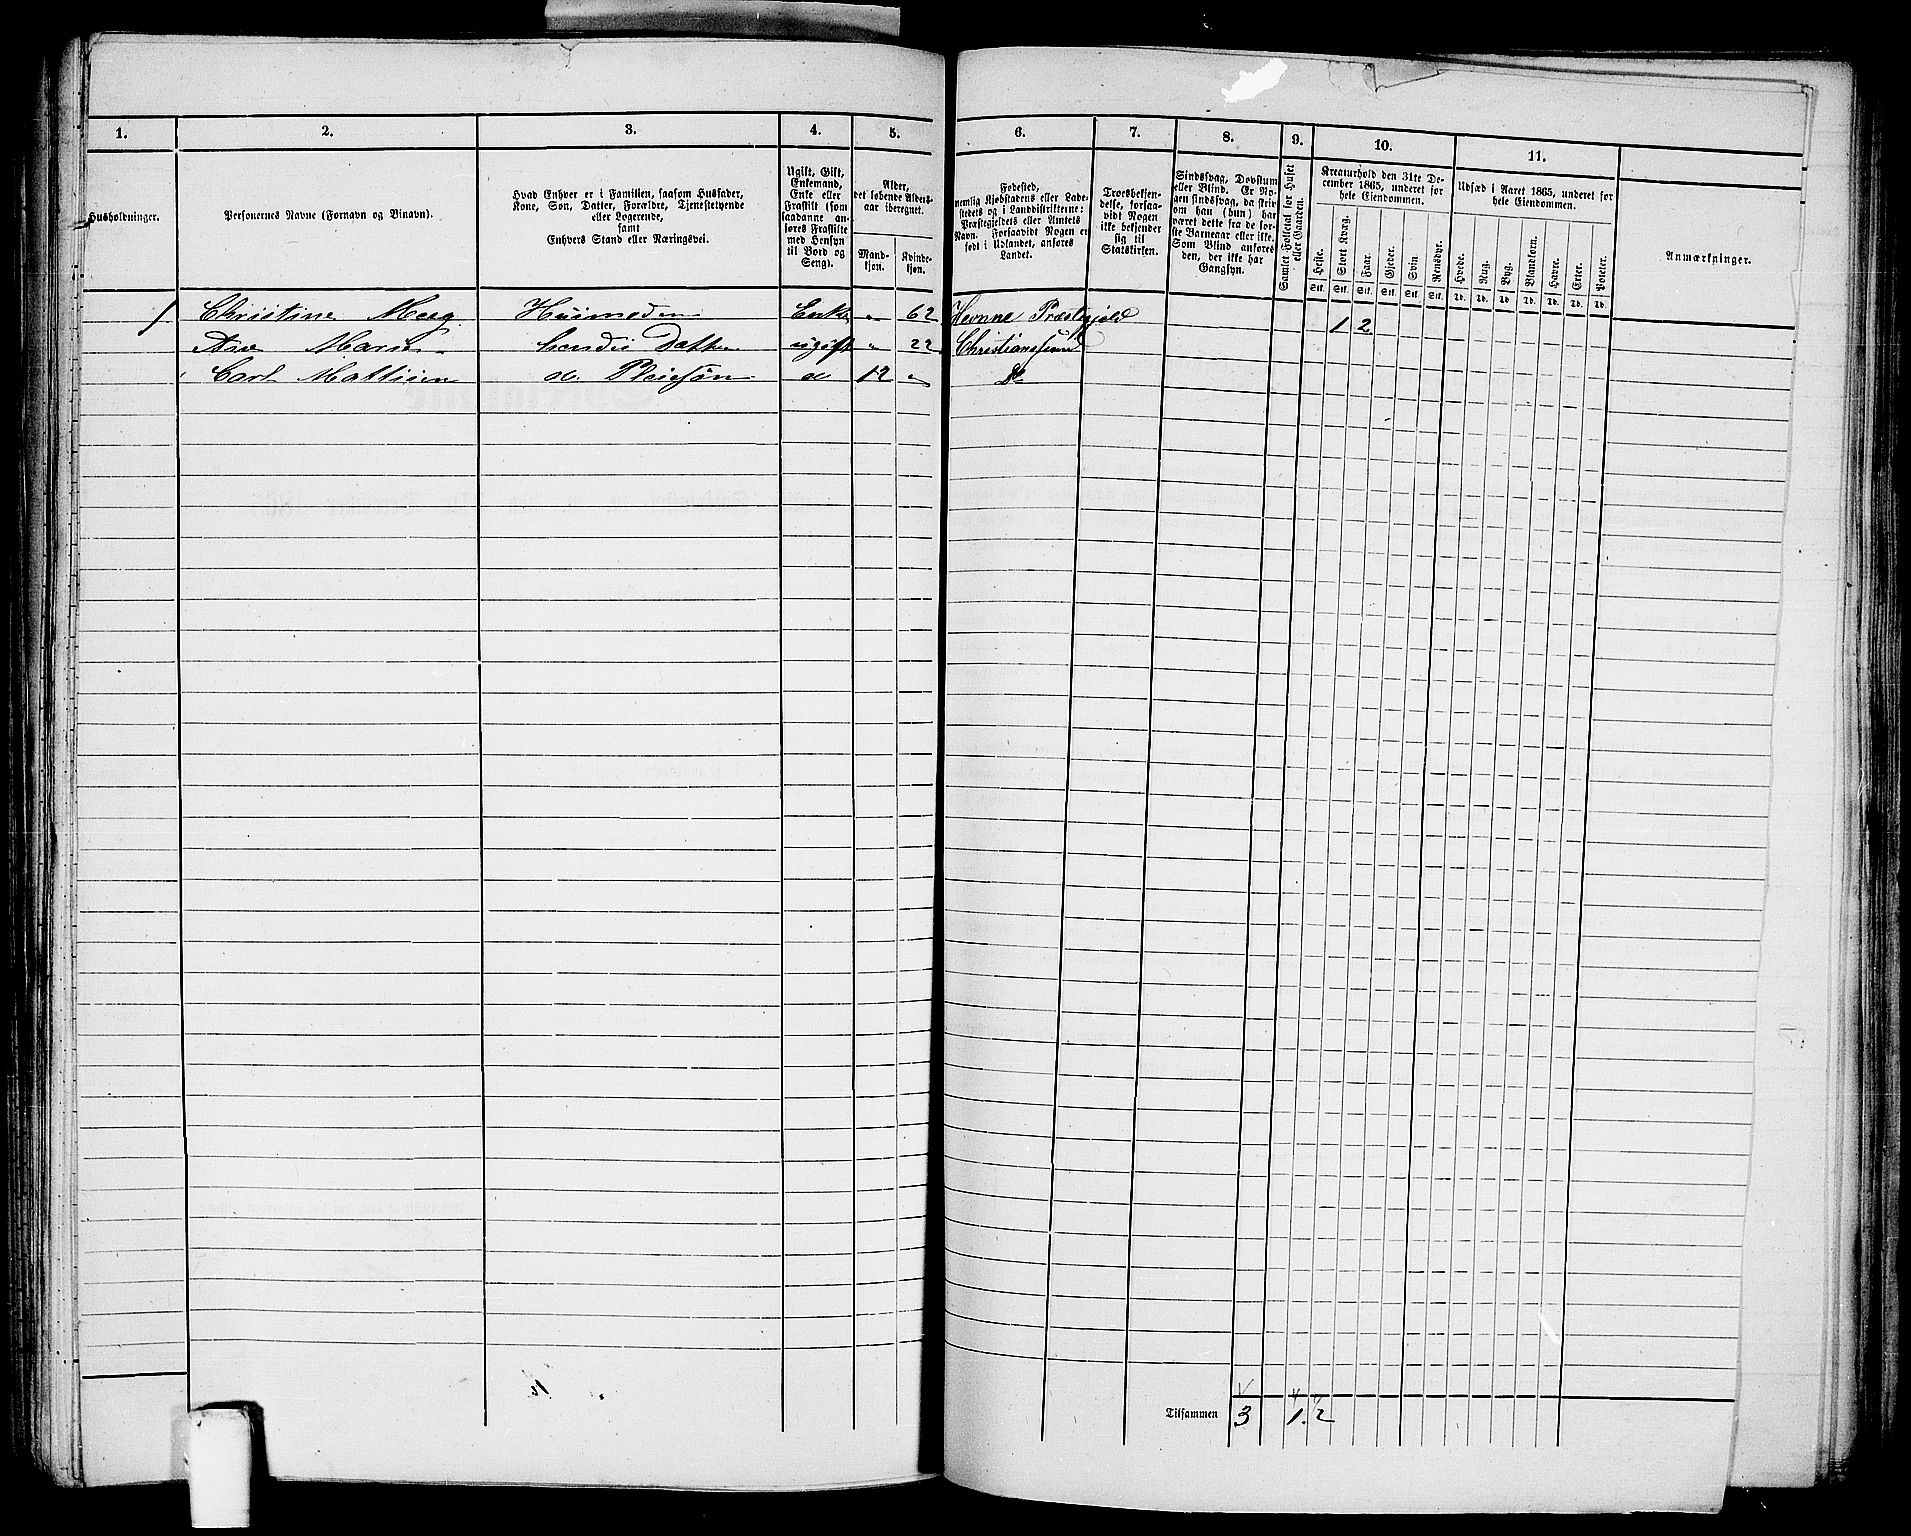 1. 2. 3. 4. 5. 6. 7. 8. 9. 10. 11.
Husholdninger.
Personernes Navne (Fornavn og Binavn).
Hvad Enhver er i Familien, saasom Husfader,
Kone, Søn, Datter, Forældre, Tjenestetyende
eller Logerende,
samt
Enhvers Stand eller Næringsvei.
Ugift, Gift,
Enkemand,
Enke eller
Fraskilt (som
saadanne an-
føres Fraskilte
med Hensyn
til Bord og
Seng).
Alder,
det løbende Alders-
aar iberegnet.
Mand-
kjøn.
Kvinde-
kjøn.
Fødested,
nemlig Kjøbstadens eller Lade-
stedets og i Landdistrikterne:
Præstegjeldets eller Amtets
Navn. Forsaavidt Nogen er
født i Udlandet, anføres
Landet.
Troesbekjen-
delse, forsaa-
vidt Nogen
ikke bekjender
sig til
Statskirken.
Sindssvag, Døvstum
eller Blind. Er No-
gen sindssvag, da skriv
om han (hun) har
været dette fra de før-
ste Barneaar eller ikke.
Som Blind anføres
den, der ikke har
Gangsyn.
Samlet Folketal for Huset
eller Gaarden.
Kreaturhold den 31te De-
cember 1865, underet for
hele Eiendommen.
Heste. Stort Kvæg. Faar. Gjeder. Svin. Rensdyr.
Stk. Stk. Stk. Stk. Stk. Stk.
Udsæd i Aaret 1865, underet for
hele Eiendommen.
Hvede. Rug. Byg. Blandkorn. Havre. Erter. Poteter.
Td. Td. Td. Td. Td. Td. Td.
Anmærkninger.
1 Christine Meeg Enke " 62 Hevnne Præstegjeld 1 2
Marie hendes Datter ugift " 22 Christianssund
Carl do Pleiesøn d 12 " Do
Tilsammen 3 1. 2